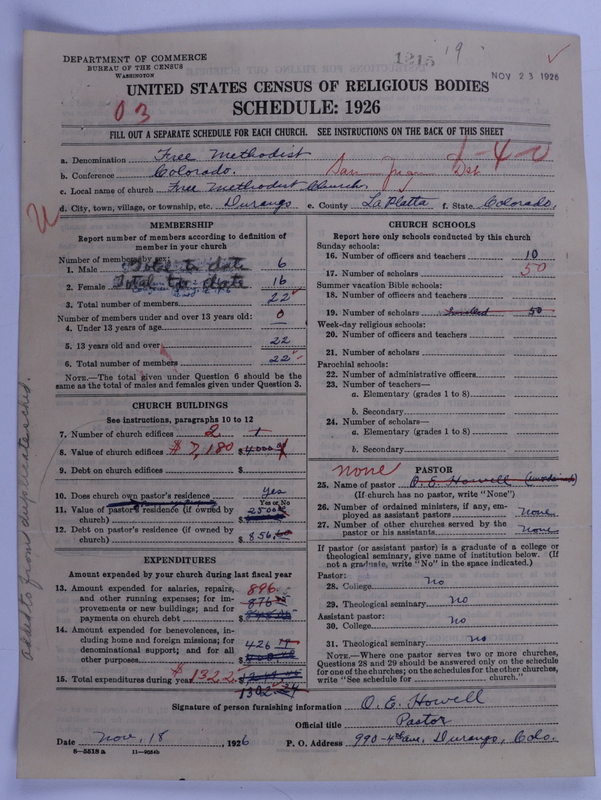 1215 19
DEPARTMENT OF COMMERCE
BUREAU OF THE CENSUS
WASHINGTON
NOV 23 1926
UNITED STATES CENSUS OF RELIGIOUS BODIES
SCHEDULE: 1926
03
FILL OUT A SEPARATE SCHEDULE FOR EACH CHURCH. SEE INSTRUCTIONS ON THE BACK OF THIS SHEET
a. Denomination Free Methodist
b. Conference Colorado. San Juan Dist
c. Local name of church Free Methodist Church.
d. City, town, village, or township, etc. Durango e. County La Platta f. State Colorado.
MEMBERSHIP
Report number of members according to definition of member in your church
Number of members by sex:
1. Male Total to date 6
2. Female Total to date 16
3. Total number of members 22
Number of members under and over 13 years old: 0
4. Under 13 years of age —
5. 13 years old and over 22
6. Total number of members 22
NOTE.—The total given under Question 6 should be the same as the total of males and females given under Question 3.
CHURCH BUILDINGS
See instructions, paragraphs 10 to 12
7. Number of church edifices 2 1
8. Value of church edifices $7,180 $4000
9. Debt on church edifices $
10. Does church own pastor's residence yes
Yes or No
11. Value of pastor's residence (if owned by church) $2500
12. Debt on pastor's residence (if owned by church) $856
EXPENDITURES
Amount expended by your church during last fiscal year
13. Amount expended for salaries, repairs, and other running expenses; for improvements or new buildings; and for payments on church debt 896. 876 $
14. Amount expended for benevolences, including home and foreign missions; for denominational support; and for all other purposes 426 $
15. Total expenditures during year $1322 $
1302
CHURCH SCHOOLS
Report here only schools conducted by this church
Sunday schools:
16. Number of officers and teachers 10
17. Number of scholars 50
Summer vacation Bible schools:
18. Number of officers and teachers
19. Number of scholars Enrolled 50
Week-day religious schools:
20. Number of officers and teachers
21. Number of scholars
Parochial schools:
22. Number of administrative officers
23. Number of teachers—
a. Elementary (grades 1 to 8)
b. Secondary
24. Number of scholars—
a. Elementary (grades 1 to 8)
b. Secondary
none PASTOR
25. Name of pastor O. E. Howell
(If church has no pastor, write "None")
26. Number of ordained ministers, if any, employed as assistant pastors none
27. Number of other churches served by the pastor or his assistants none
If pastor (or assistant pastor) is a graduate of a college or theological seminary, give name of institution below. (If not a graduate, write "No" in the space indicated.)
Pastor:
28. College no
29. Theological seminary no
Assistant pastor:
30. College no
31. Theological seminary no
NOTE.—Where one pastor serves two or more churches, Questions 28 and 29 should be answered only on the schedule for one of the churches; on the schedules for the other churches, write "See schedule for church."
Signature of person furnishing information O. E. Howell
Official title Pastor
Date Nov. 18, 1926 P. O. Address 990-4th Ave, Durango, Colo.
8-5318a 11-9054b
Added to from duplicate sched.